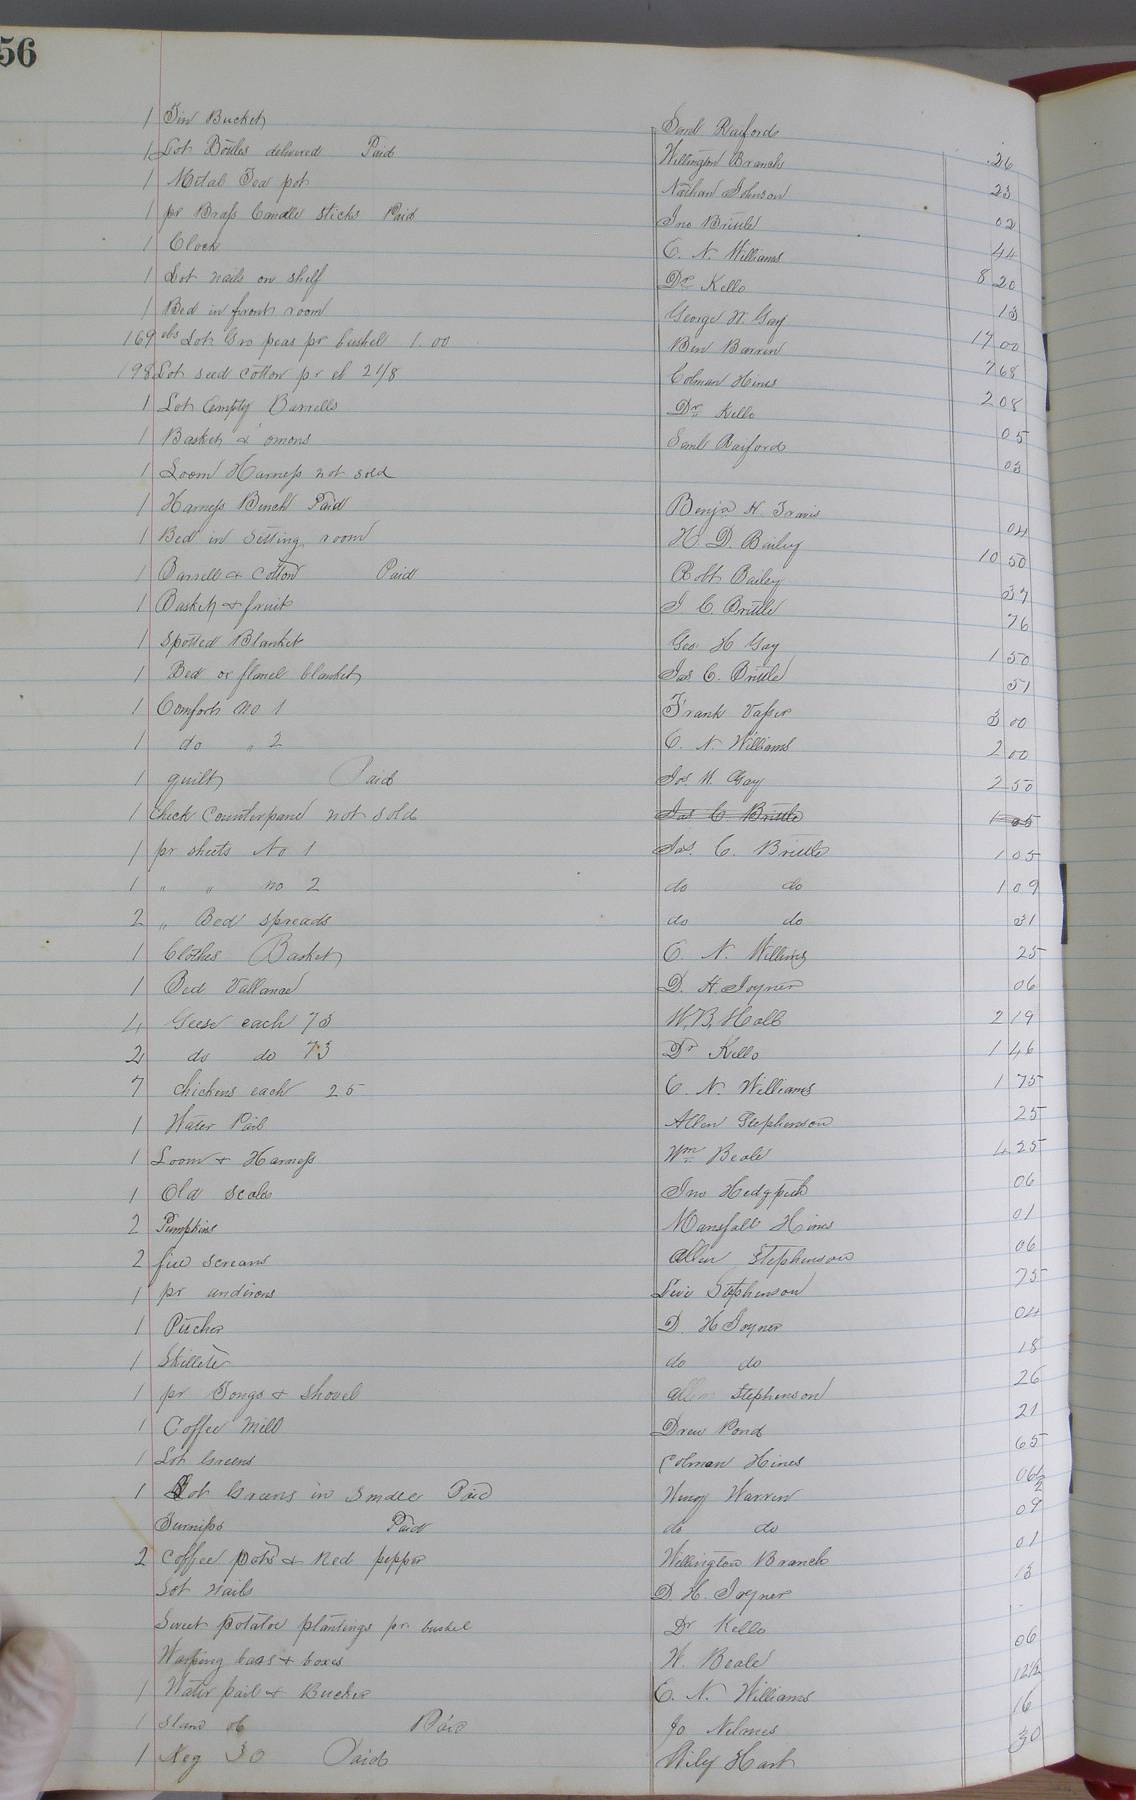 56
1 Tin Bucket Saml Rayford .26
1 Lot Bottles delivered Paid Willington Branch 25
1 Metal Tea pot Nathan Johnson 02
1 pr Brass Candle sticks Paid Jno Brittle 44
1 Clock C. N. Williams 8 20
1 Lot nails on shelf Dr Kello 13
1 Bed in front room George H. Gay 17 00
169 lbs Lot Gro peas pr bushel 1.00 Ben Barrin 7 68
198 Lot seed cotton pr lb 2 1/8 Colman Hines 2 08
1 Lot Empty Barrells Dr Kello 05
1 Basket & onions Saml Rayford 03
1 Loom Harness not sold
1 Harness Bench Paid Benja H. Travis 04
1 Bed in Setting room H. D. Bailey 10 50
1 Barrell & Cotton Paid Robt Bailey 37
1 Basket & fruit J C. Brittle 76
1 Spotted Blanket Geo H Gay 1 50
1 Bed or flanel blanket Jas C. Brittle 51
1 Comfort No 1 Frank Vasser 3 00
1 do " 2 C. N. Williams 2 00
1 quilt Paid Jos. H. Gay 2 50
1 Check Counterpane not sold Jas C Brittle 1 05
1 pr sheets No 1 Jas. C. Brittle 1 05
1 " " no 2 do do 1 09
2 " Bed spreads do do 31
1 Clothes Basket C. N. Williams 25
1 Bed Vallance D. H. Joyner 06
4 Geese each 73 W. B. Hall 2 19
2 do do 73 Dr Kello 1 46
7 Chickens each 25 C. N. Williams 1 75
1 Water Pail Allen Stephenson 25
1 Loom & Harness Wm Beale 4 25
1 Old scales Jno Hedgpeth 06
2 Pumpkins Mansfall Hines 01
2 fire screans Allen Stephenson 06
1 pr andirons Levi Stephenson 75
1 Pitcher D. H Joyner 04
1 Skillete do do 18
1 pr Tongs & Shovel Allen Stephenson 26
1 Coffee Mill Drew Pond 21
1 Lot Greens Colman Hines 65
1 Lot Greens in Warren 06 1/2
Turnips Paid do do 09
2 Coffee pots & Red pepper Willington Branch 01
Lot nails D. H. Joyner 13
Sweet potatoe plantings pr bushel Dr Kello
Warping bars & boxes W. Beale 06
1 Water pail & Bucket C. N. Williams 12 1/2
1 Paid Jo Nelmes 16
1 Keg 30 Paid Wiley Hart 30